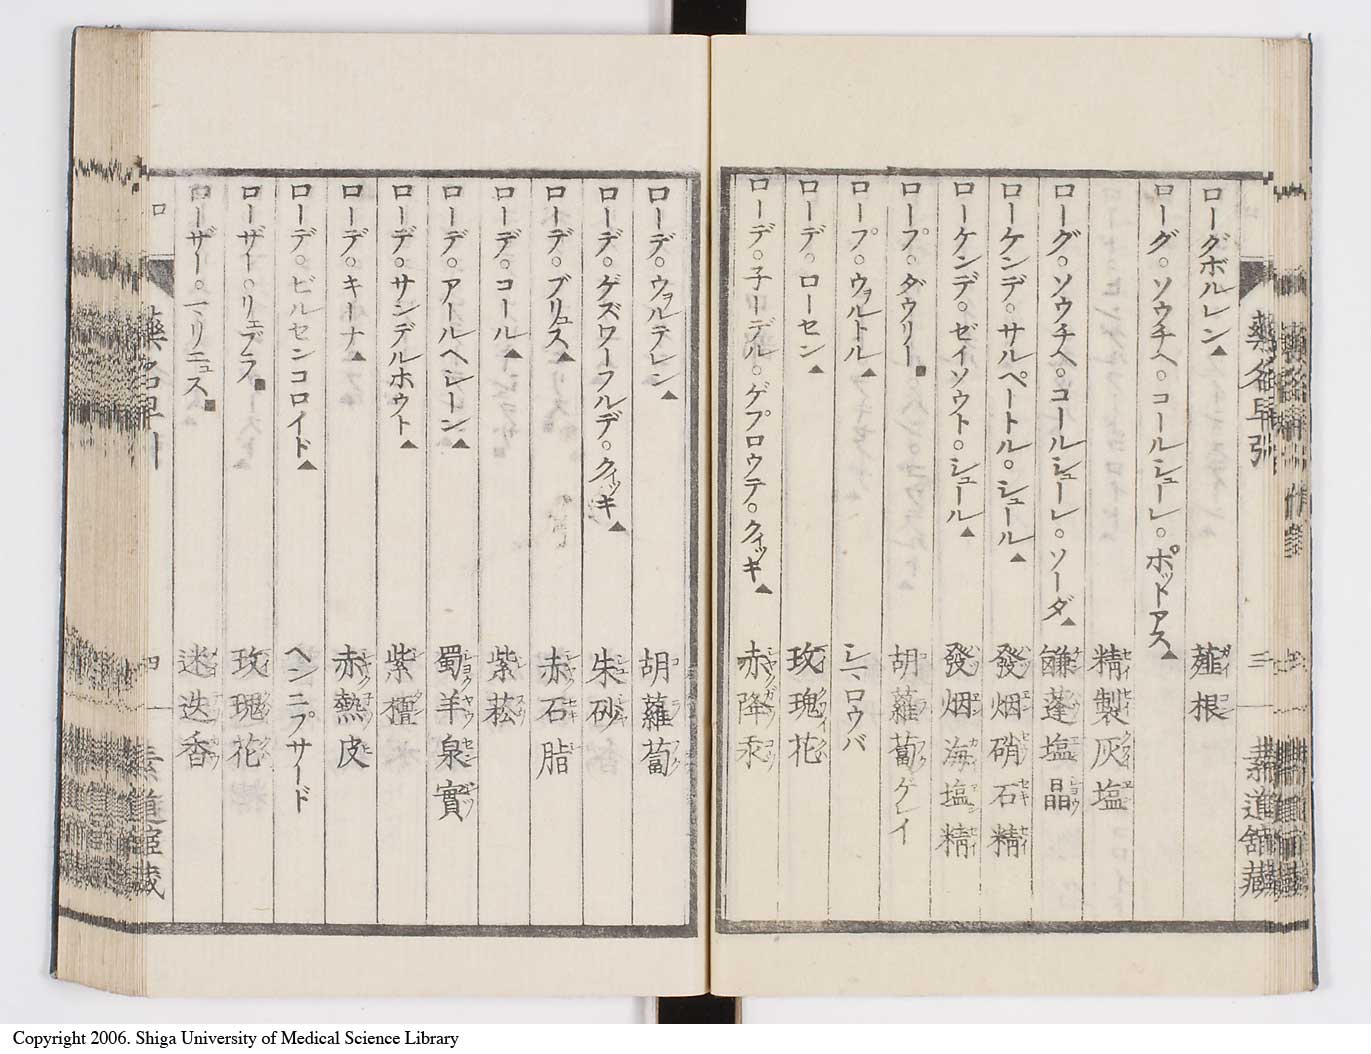 藥名早引 三 素道舘藏
ローグボルレン▲ 薤根
ローグ。ソウチヘ。コールシューレ。ポットアス▲
精製灰塩
ローグ。ソウチヘ。コールシューレ。ソーダ▲ 鹻蓬塩晶
ローケンデ。サルペートル。シュール▲ 發烟硝石精
ローケンデ。ゼイソウト。シュール▲ 發烟海塩精
ロープ。ダウリー■ 胡蘿蔔ゲレイ
ロープ。ウォルトル▲ シヽロウバ
ローデ。ローセン▲ 玫瑰花
ローデ。子ーデル。ゲプロウテ。クイッキ▲ 赤降汞
ローデ。ウォルテレン▲ 胡蘿蔔
ローデ。ゲズワーフルデ。クイッキ▲ 朱砂
ローデ。ブリュス▲ 赤石脂
ローデ。コール▲ 紫菘
ローデ。アールベレーン▲ 蜀羊泉實
ローデ。サンデルホウト▲ 紫檀
ローデ。キーナ▲ 赤熱皮
ローデ。ビルセンコロイド▲ ヘンニプサード
ローザー。リュブラ■ 玫瑰花
ローザー。マリニュス■ 迷迭香
ロ 四
Copyright 2006. Shiga University of Medical Science Library